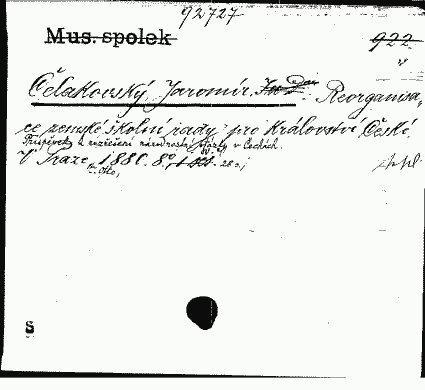 92727
Mus. spolek
922
Čelakovský, Jaromír. Reorganisa-
ce zemské školní rady pro Království České.
Příspěvek k rozřešení národnostní otázky v Čechách.
V Praze, 1880. 8° 28 s.
S